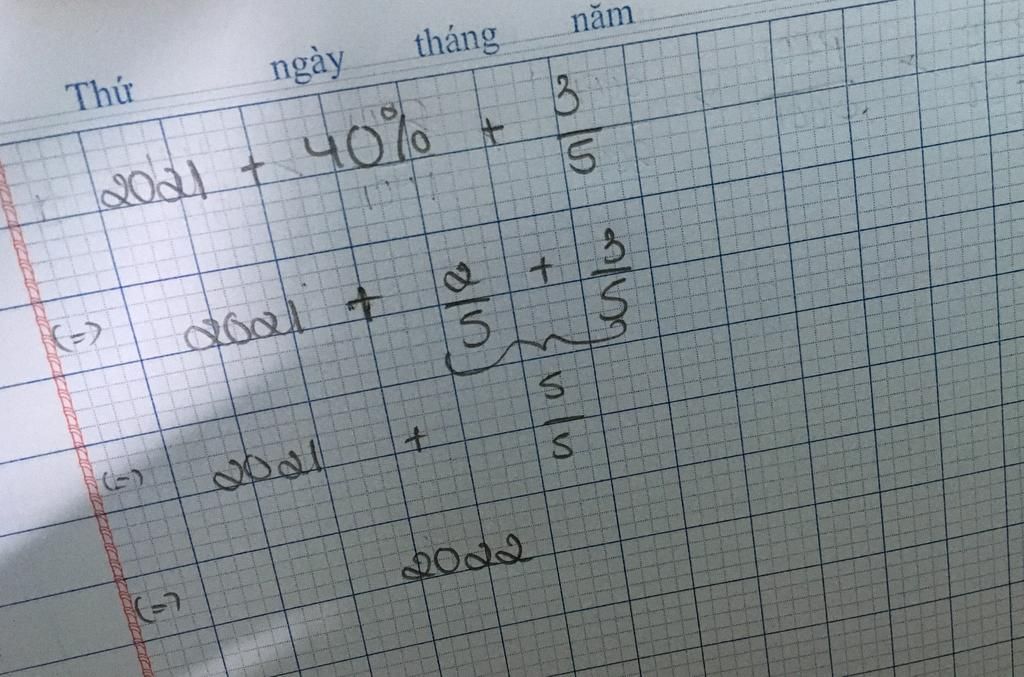 Thứ ngày tháng năm
2021 + 40% + 3/5
(=) 2021 + 2/5 + 3/5
(=) 2021 + 5/5
(=) 2022